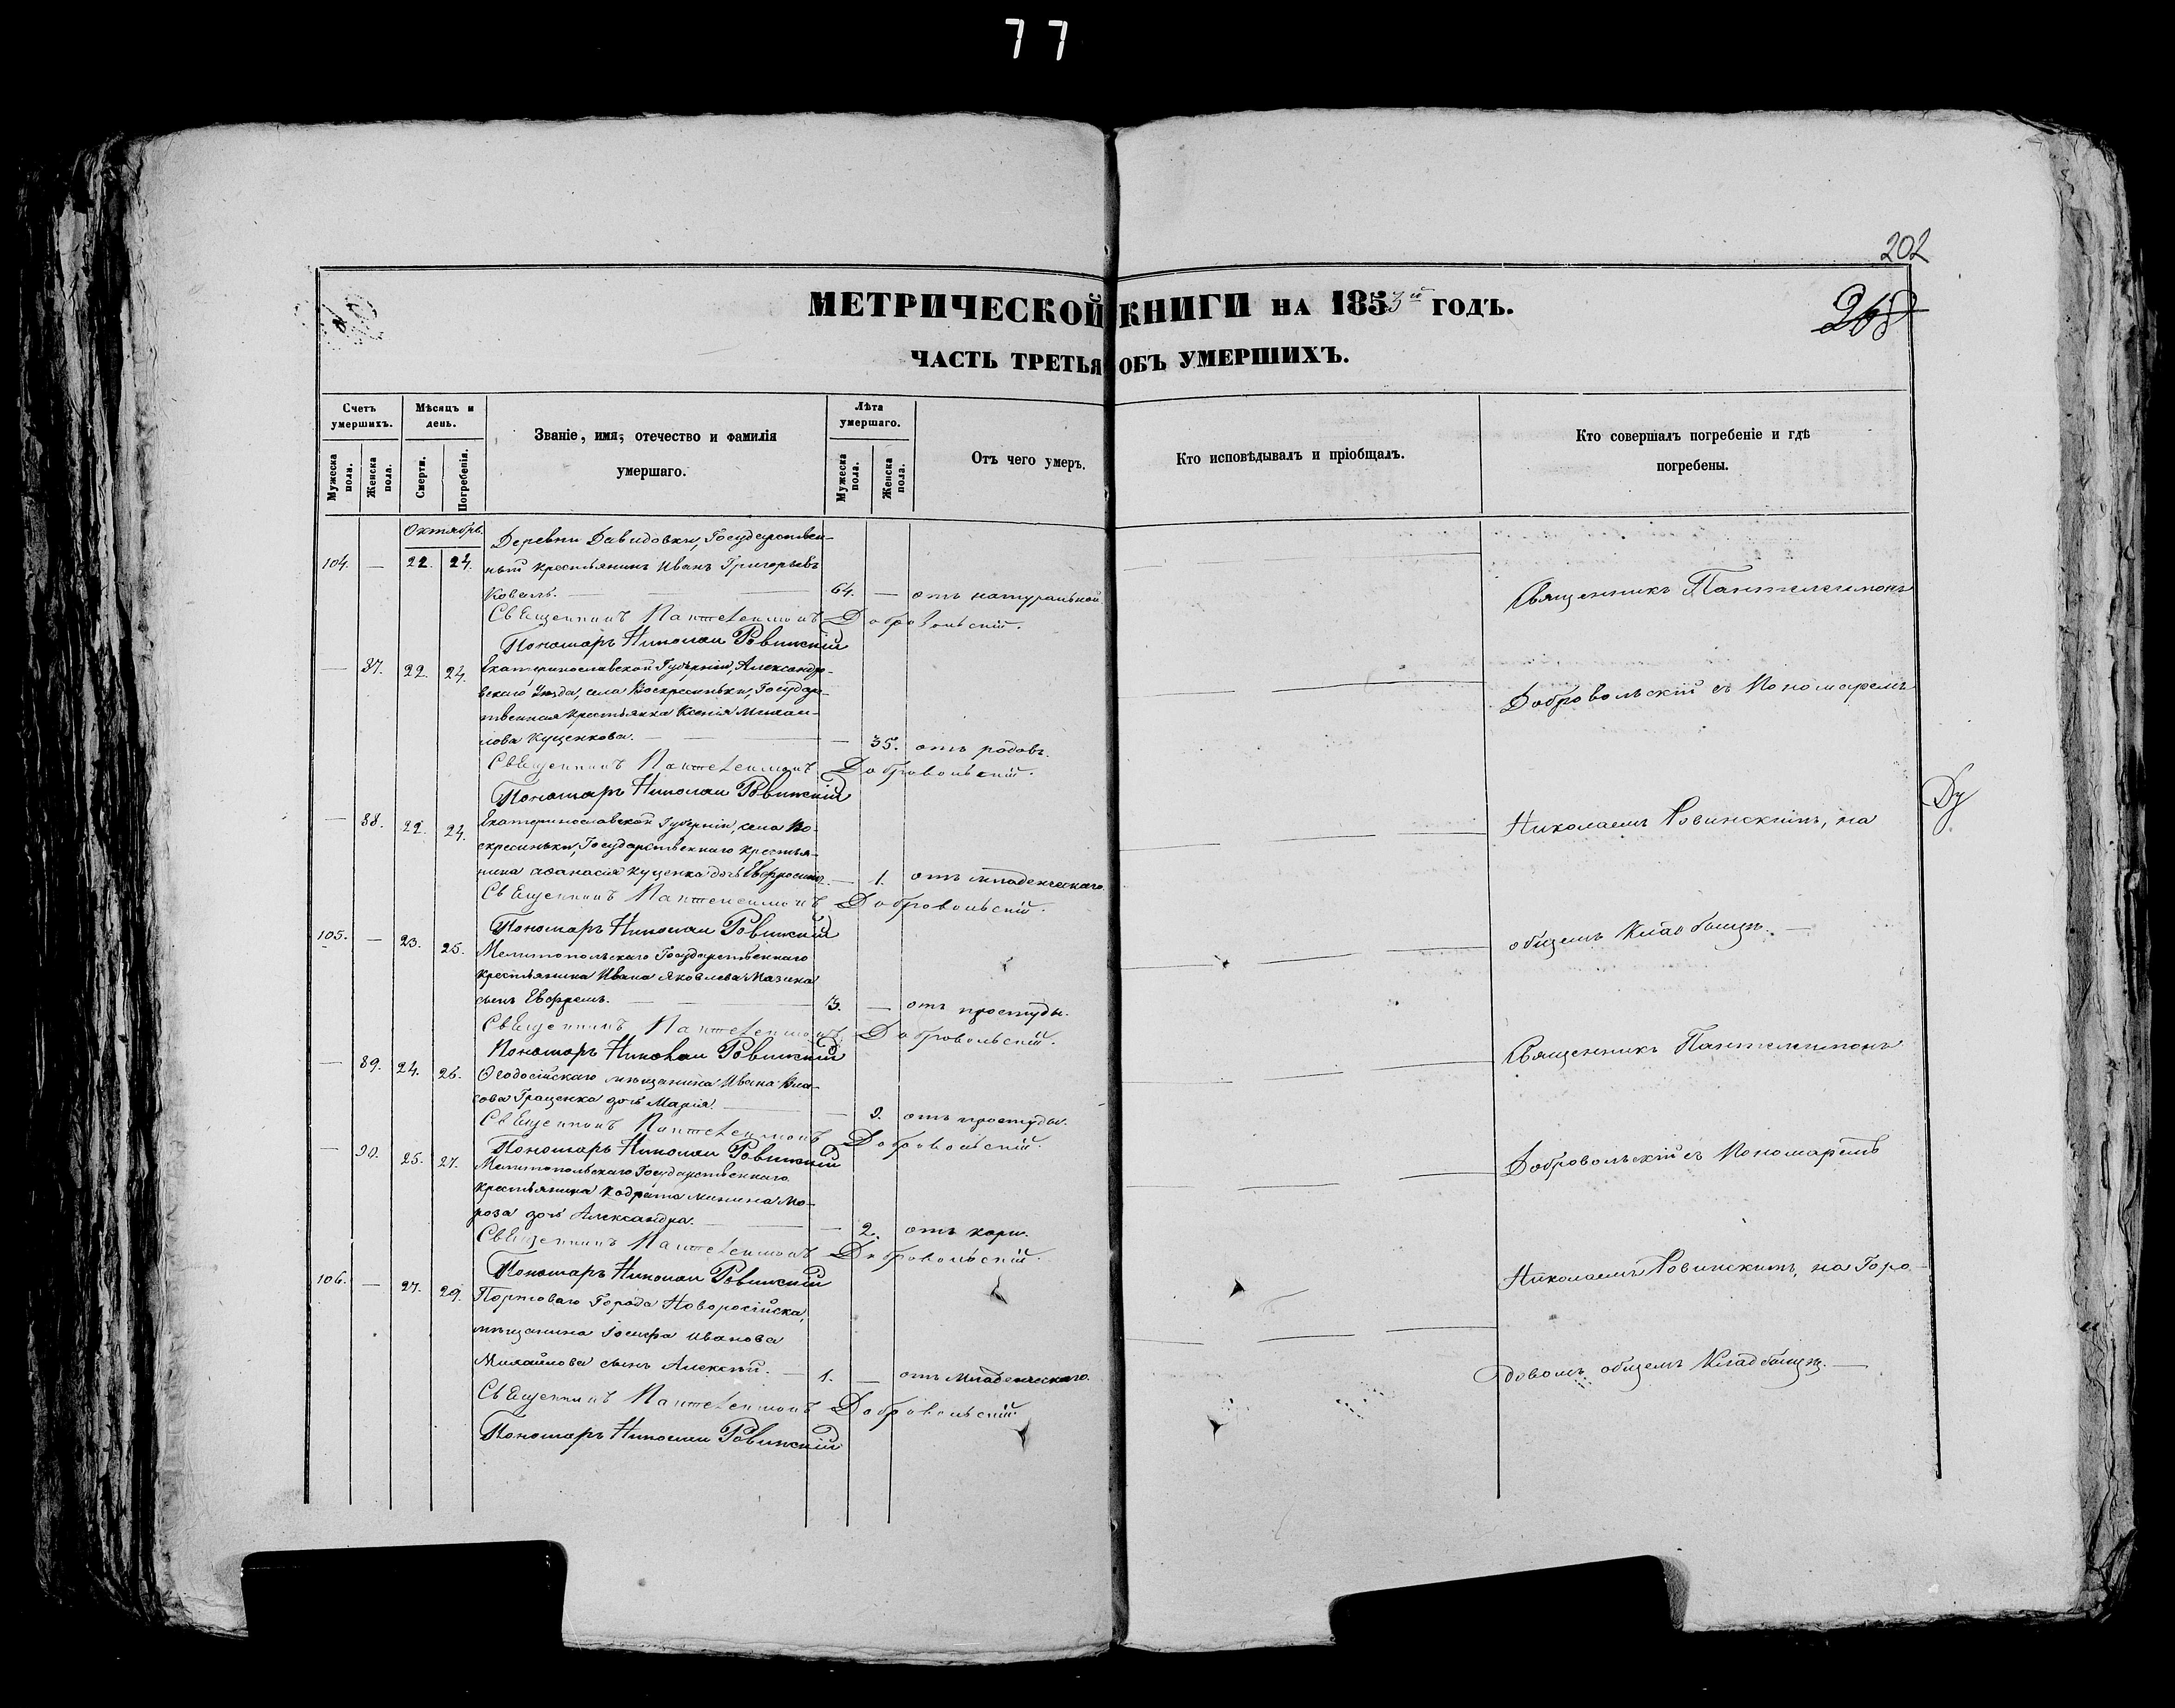 77
202
268
МЕТРИЧЕСКОЙ КНИГИ НА 1853й ГОДЪ.
ЧАСТЬ ТРЕТЬЯ ОБЪ УМЕРШИХЪ.
Счетъ умершихъ.
Мужеска пола.
Женска пола.
Мѣсяцъ и день.
Смерти.
Погребенія.
Званіе, имя, отечество и фамилія умершаго.
Лѣта умершаго.
Мужеска пола.
Женска пола.
Отъ чего умеръ.
Кто исповѣдывалъ и пріобщалъ.
Кто совершалъ погребеніе и гдѣ погребены.
Октябрь.
Деревни Давидовки, Государствен-
104. — 22. 24. ный крестьянинъ Иванъ Григорьевъ
Коваль. — 64. — отъ натуральной
Священникъ Пантелеимонъ Добровольскій.
Пономарь Николай Ровинскій
— 87. 22. 24. Екатеринославской Губерніи, Александро-
вскаго уѣзда, села Воскресеньки, Государ-
ственная крестьянка Ксенія Михаи-
лова Куценкова. — — 35. отъ родовъ.
Священникъ Пантелеимонъ Добровольскій.
Пономарь Николай Ровинскій
— 88. 22. 24. Екатеринославской Губерніи, села Во-
скресеньки, Государственнаго крестья-
нина Афанасія Куценка дочь Евфросинія — 1. отъ младенческаго.
Священникъ Пантелеимонъ Добровольскій.
Пономарь Николай Ровинскій
105. — 23. 25. Мелитопольскаго Государственнаго
крестьянина Ивана Яковлева Мазика
сынъ Евфремъ. — 13. — отъ простуды.
Священникъ Пантелеимонъ Добровольскій.
Пономарь Николай Ровинскій
— 89. 24. 26. Ѳеодосійскаго мѣщанина Ивана Вла-
сова Гращенка дочь Марія. — 9. отъ простуды.
Священникъ Пантелеимонъ Добровольскій.
Пономарь Николай Ровинскій
— 90. 25. 27. Мелитопольскаго Государственнаго
крестьянина Кодрата Минина Мо-
роза дочь Александра. — — 2. отъ кори.
Священникъ Пантелеимонъ Добровольскій.
Пономарь Николай Ровинскій
106. — 27. 29. Портоваго Города Новоросійска,
мѣщанина Іосифа Иванова
Михайлова сынъ Алексѣй. — 1. — отъ младенческаго.
Священникъ Пантелеимонъ Добровольскій.
Пономарь Николай Ровинскій
Священникъ Пантелеимонъ
Добровольскій съ Пономаремъ
Николаемъ Ровинскимъ, на
общемъ Кладбищѣ. —
Священникъ Пантелеимонъ
Добровольскій съ Пономаремъ
Николаемъ Ровинскимъ, на Горо-
довомъ общемъ Кладбищѣ. —
Ду